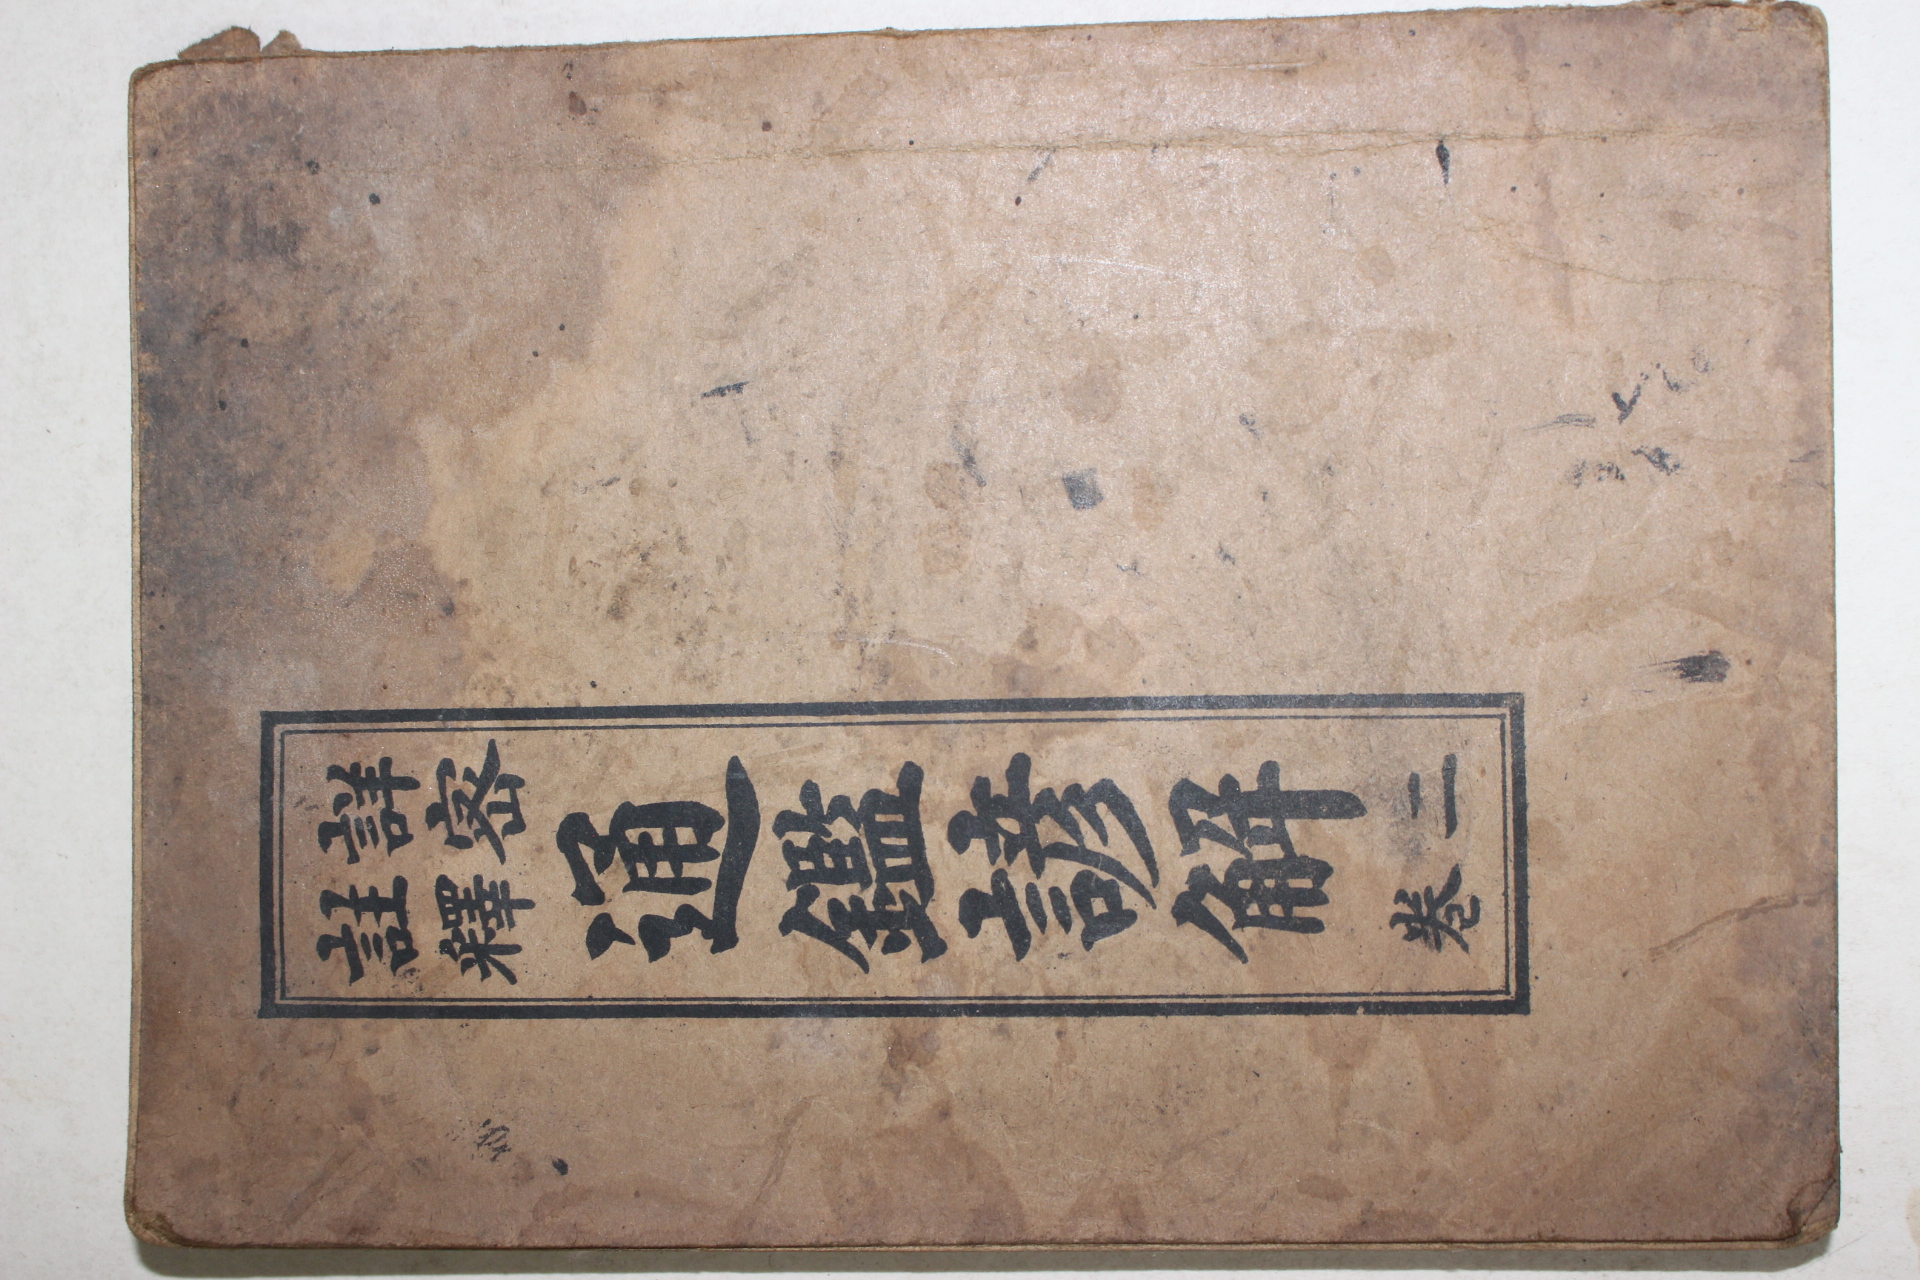 詳密
註釋
通鑑諺解
卷二